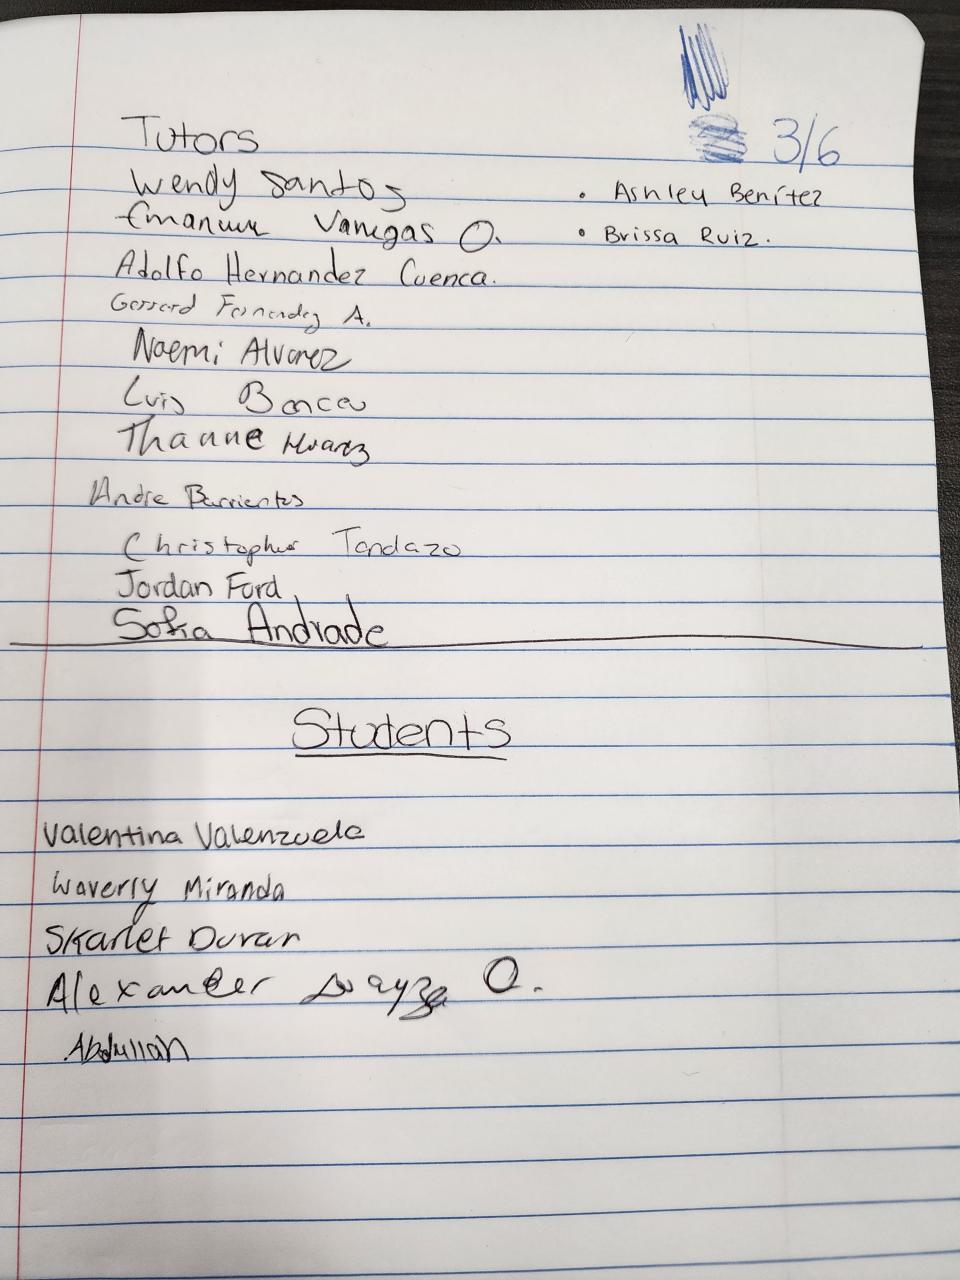 3/6
Tutors
Wendy Santos
Vanegas O.
Adolfo Hernandez Cuenca.
Gerrard Fernandez A.
Noemi Alvarez
Luis
Thanne Alvarez
Andre Barrientos
Christopher Tandazo
Jordan Ford
Sofia Andrade
• Ashley Benítez
• Brissa Ruiz.
Students
Valentina Valenzuela
Waverly Miranda
Skarlet Duran
Alexander O.
Abdullah